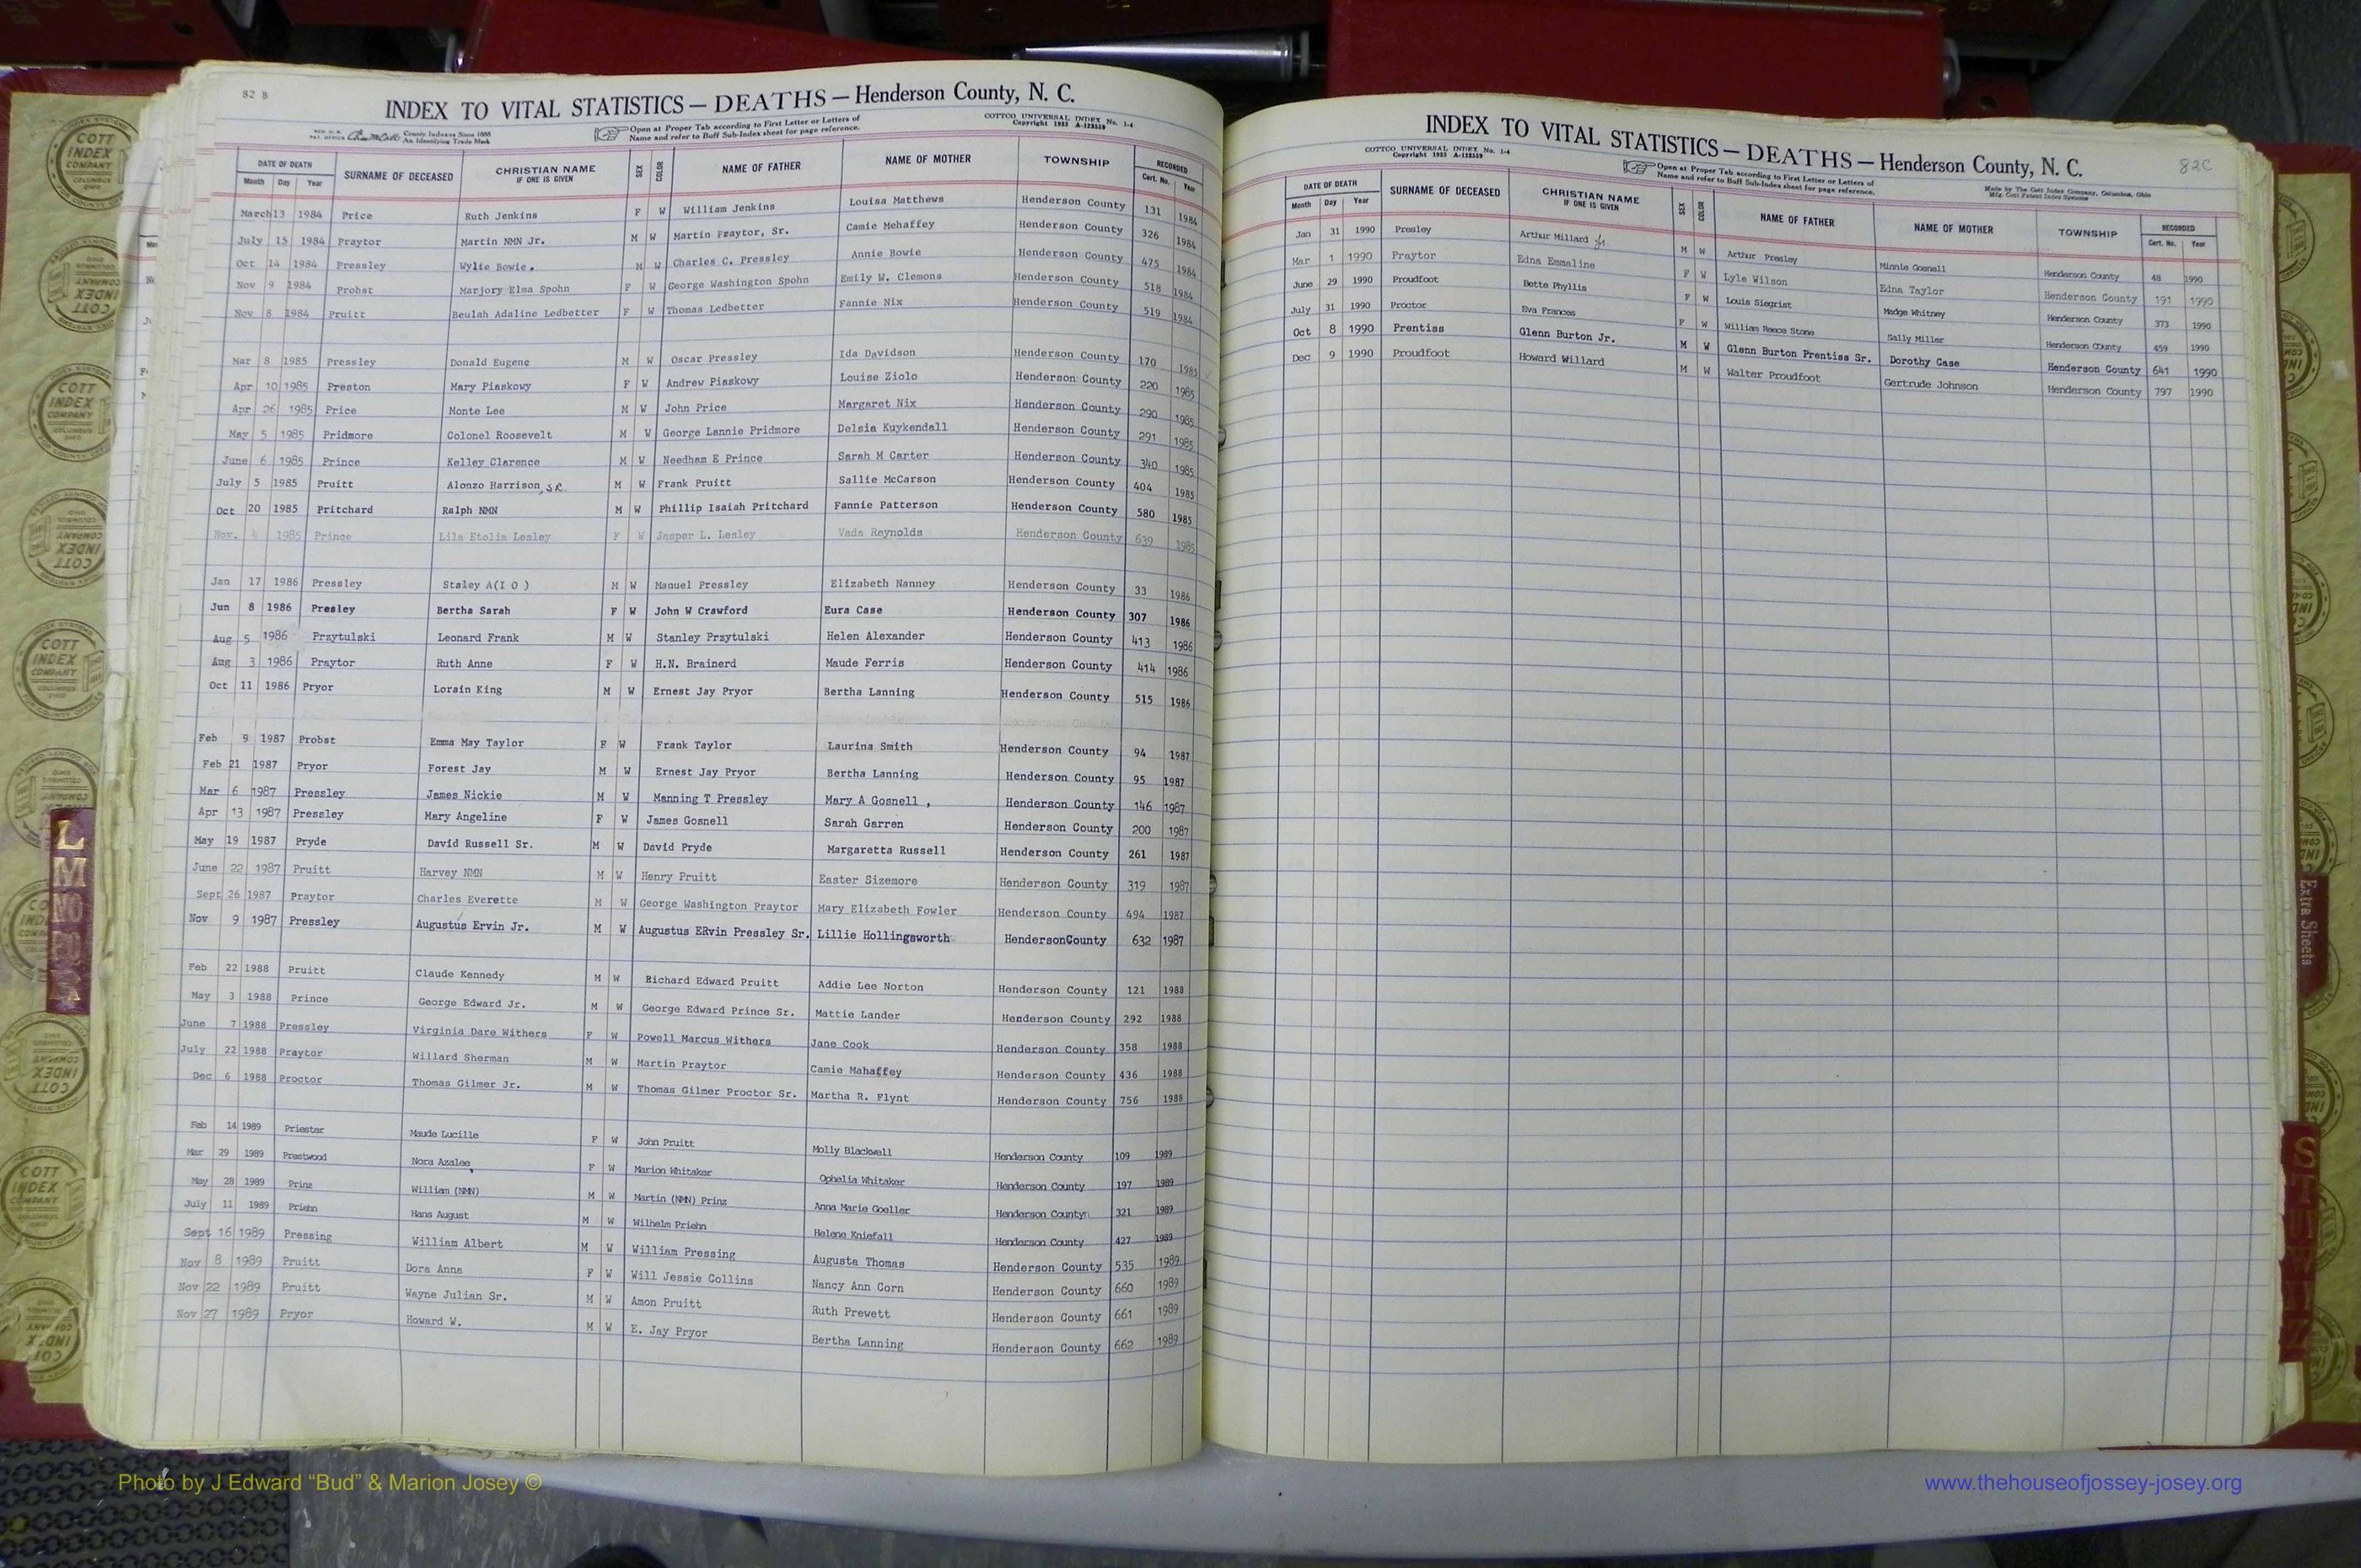 82 B
INDEX TO VITAL STATISTICS — DEATHS — Henderson County, N. C.
County Indexes Since 1888
An Identifying Trade Mark
Open at Proper Tab according to First Letter or Letters of
Name and refer to Buff Sub-Index sheet for page reference.
COTTCO UNIVERSAL INDEX No. 1-4
Copyright 1933 A-122559
DATE OF DEATH SURNAME OF DECEASED CHRISTIAN NAME IF ONE IS GIVEN SEX COLOR NAME OF FATHER NAME OF MOTHER TOWNSHIP RECORDED
Month Day Year Cert. No. Year
March 13 1984 Price Ruth Jenkins F W William Jenkins Louisa Matthews Henderson County 131 1984
July 15 1984 Praytor Martin NMN Jr. M W Martin Praytor, Sr. Camie Mehaffey Henderson County 326 1984
Oct 14 1984 Pressley Wylie Bowie. M W Charles C. Pressley Annie Bowie Henderson County 475 1984
Nov 9 1984 Probst Marjory Elma Spohn F W George Washington Spohn Emily W. Clemons Henderson County 518 1984
Nov 8 1984 Pruitt Beulah Adaline Ledbetter F W Thomas Ledbetter Fannie Nix Henderson County 519 1984
Mar 8 1985 Pressley Donald Eugene M W Oscar Pressley Ida Davidson Henderson County 170 1985
Apr 10 1985 Preston Mary Piaskowy F W Andrew Piaskowy Louise Ziolo Henderson County 220 1985
Apr 26 1985 Price Monte Lee M W John Price Margaret Nix Henderson County 290 1985
May 5 1985 Pridmore Colonel Roosevelt M W George Lannie Pridmore Delsia Kuykendall Henderson County 291 1985
June 6 1985 Prince Kelley Clarence M W Needham E Prince Sarah M Carter Henderson County 340 1985
July 5 1985 Pruitt Alonzo Harrison, SR. M W Frank Pruitt Sallie McCarson Henderson County 404 1985
Oct 20 1985 Pritchard Ralph NMN M W Phillip Isaiah Pritchard Fannie Patterson Henderson County 580 1985
Nov. 4 1985 Prince Lila Etolia Lesley F W Jasper L. Lesley Vada Reynolds Henderson County 639 1985
Jan 17 1986 Pressley Staley A(I O ) M W Manuel Pressley Elizabeth Nanney Henderson County 33 1986
Jun 8 1986 Presley Bertha Sarah F W John W Crawford Eura Case Henderson County 307 1986
Aug 5 1986 Przytulski Leonard Frank M W Stanley Przytulski Helen Alexander Henderson County 413 1986
Aug 3 1986 Praytor Ruth Anne F W H.N. Brainerd Maude Ferris Henderson County 414 1986
Oct 11 1986 Pryor Lorain King M W Ernest Jay Pryor Bertha Lanning Henderson County 515 1986
Feb 9 1987 Probst Emma May Taylor F W Frank Taylor Laurina Smith Henderson County 94 1987
Feb 21 1987 Pryor Forest Jay M W Ernest Jay Pryor Bertha Lanning Henderson County 95 1987
Mar 6 1987 Pressley James Nickie M W Manning T Pressley Mary A Gosnell , Henderson County 146 1987
Apr 13 1987 Pressley Mary Angeline F W James Gosnell Sarah Garren Henderson County 200 1987
May 19 1987 Pryde David Russell Sr. M W David Pryde Margaretta Russell Henderson County 261 1987
June 22 1987 Pruitt Harvey NMN M W Henry Pruitt Easter Sizemore Henderson County 319 1987
Sept 26 1987 Praytor Charles Everette M W George Washington Praytor Mary Elizabeth Fowler Henderson County 494 1987
Nov 9 1987 Pressley Augustus Ervin Jr. M W Augustus ERvin Pressley Sr. Lillie Hollingsworth HendersonCounty 632 1987
Feb 22 1988 Pruitt Claude Kennedy M W Richard Edward Pruitt Addie Lee Norton Henderson County 121 1988
May 3 1988 Prince George Edward Jr. M W George Edward Prince Sr. Mattie Lander Henderson County 292 1988
June 7 1988 Pressley Virginia Dare Withers F W Powell Marcus Withers Jane Cook Henderson County 358 1988
July 22 1988 Praytor Willard Sherman M W Martin Praytor Camie Mahaffey Henderson County 436 1988
Dec 6 1988 Proctor Thomas Gilmer Jr. M W Thomas Gilmer Proctor Sr. Martha R. Flynt Henderson County 756 1988
Feb 14 1989 Priester Maude Lucille F W John Pruitt Molly Blackwell Henderson County 109 1989
Mar 29 1989 Prestwood Nora Azalee F W Marion Whitaker Ophelia Whitaker Henderson County 197 1989
May 28 1989 Prinz William (NMN) M W Martin (NMN) Prinz Anna Marie Goeller Henderson County 321 1989
July 11 1989 Priehn Hans August M W Wilhelm Priehn Helene Kniefall Henderson County 427 1989
Sept 16 1989 Pressing William Albert M W William Pressing Augusta Thomas Henderson County 535 1989
Nov 8 1989 Pruitt Dora Anna F W Will Jessie Collins Nancy Ann Corn Henderson County 660 1989
Nov 22 1989 Pruitt Wayne Julian Sr. M W Amon Pruitt Ruth Prewett Henderson County 661 1989
Nov 27 1989 Pryor Howard W. M W E. Jay Pryor Bertha Lanning Henderson County 662 1989
INDEX TO VITAL STATISTICS — DEATHS — Henderson County, N. C.
82C
COTTCO UNIVERSAL INDEX No. 1-4
Copyright 1933 A-122559
Open at Proper Tab according to First Letter or Letters of
Name and refer to Buff Sub-Index sheet for page reference.
Made by The Cott Index Company, Columbus, Ohio
Mfg. Cott Patent Index Systems
DATE OF DEATH SURNAME OF DECEASED CHRISTIAN NAME IF ONE IS GIVEN SEX COLOR NAME OF FATHER NAME OF MOTHER TOWNSHIP RECORDED
Month Day Year Cert. No. Year
Jan 31 1990 Presley Arthur Millard Jr. M W Arthur Presley Minnie Gosnell Henderson County 48 1990
Mar 1 1990 Praytor Edna Emmaline F W Lyle Wilson Edna Taylor Henderson County 191 1990
June 29 1990 Proudfoot Bette Phyllis F W Louis Siegrist Madge Whitney Henderson County 373 1990
July 31 1990 Proctor Eva Frances F W William Reece Stone Sally Miller Henderson County 459 1990
Oct 8 1990 Prentiss Glenn Burton Jr. M W Glenn Burton Prentiss Sr. Dorothy Case Henderson County 641 1990
Dec 9 1990 Proudfoot Howard Willard M W Walter Proudfoot Gertrude Johnson Henderson County 797 1990
COTT INDEX COMPANY
L
M
NO
PQ
Extra Sheets
S
Photo by J Edward “Bud” & Marion Josey ©
www.thehouseofjossey-josey.org